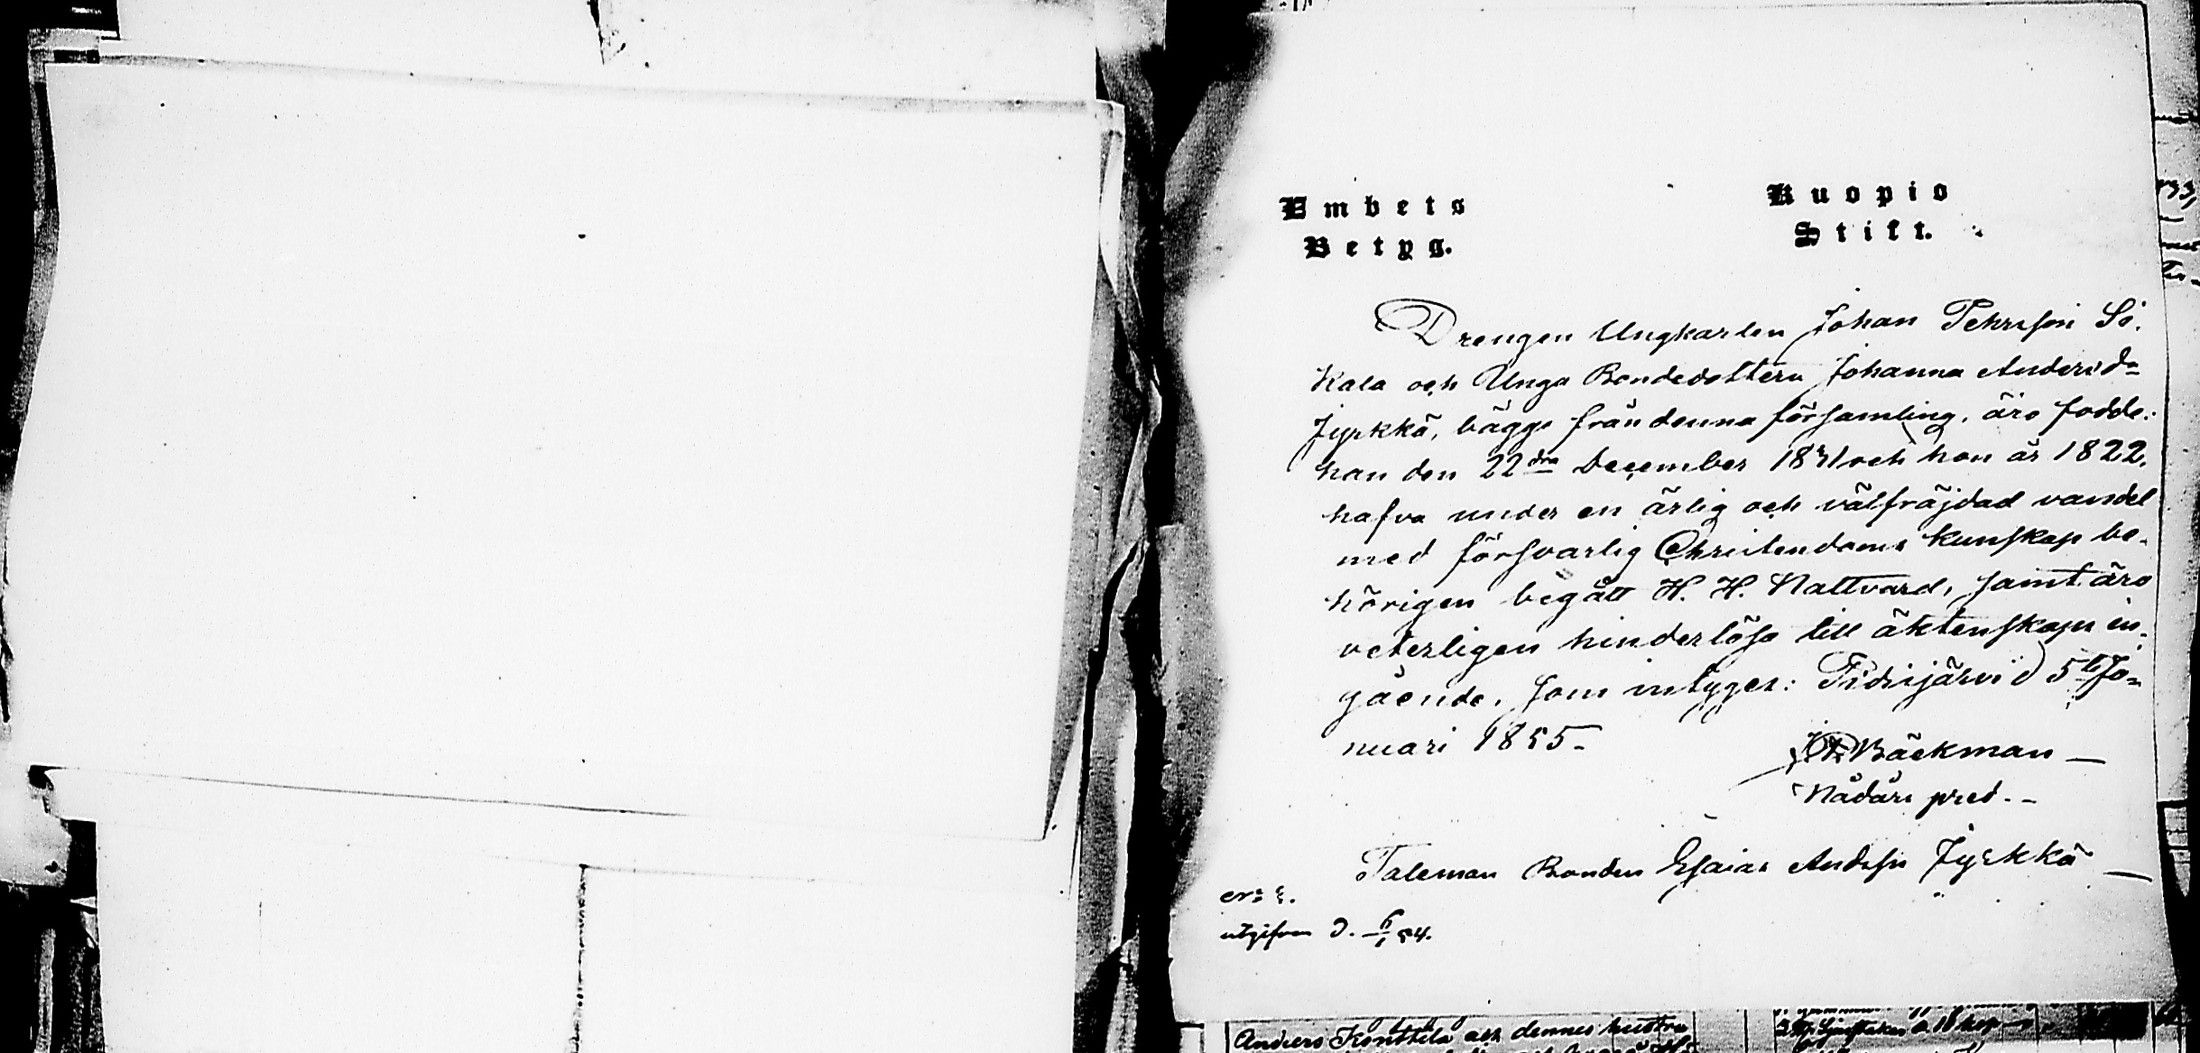 Embets
Betyg.
Kuopio
Stift.
Drengen Ungkarlen Johan Pehrsson Si-
kala och Unga Bondedottern Johanna Andersd=
Jyrkkä, bägge från denna församling, äro födde:
han den 22dra December 1831 och hon år 1822,
hafva under en ärlig och välfräjdad vandel
med försvarlig Christendoms kunskap be-
hörigen begått H. H. Nattvard, samt äro
veterligen hinderlösa till äktenskaps in-
gående, som intygar: Pidisjärvi d 5te Ja=
nuari 1855-
Bäckman
Nådårs pred.-
Taleman Bonden Esaias Andsson Jyrkkä
utgifven d. 54.
Anders Konttila och dennes hustru